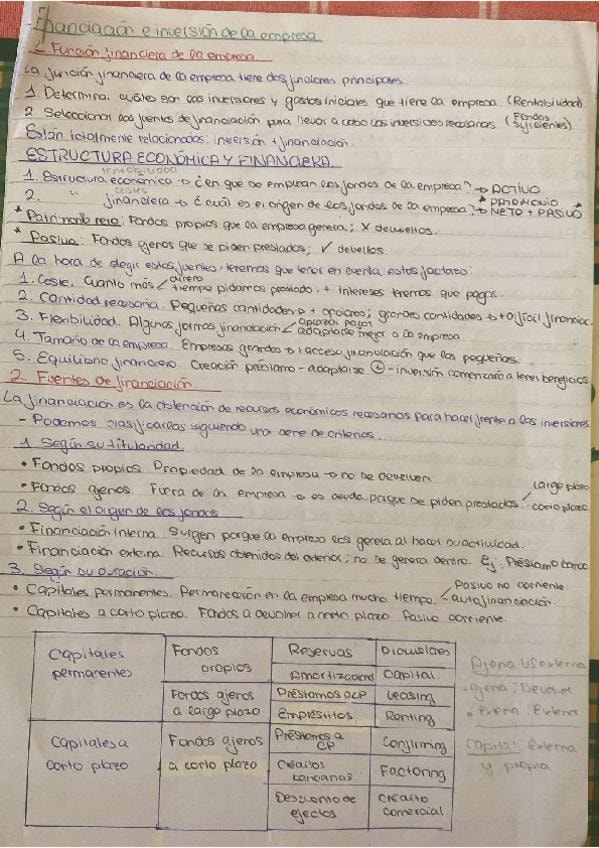 Financiación e inversión de la empresa
1. Función financiera de la empresa
La función financiera de la empresa tiene dos funciones principales
1. Determinar cuáles son las inversiones y gastos iniciales que tiene la empresa (Rentabilidad).
2. Seleccionar las fuentes de financiación para llevar a cabo las inversiones necesarias. (Fondos suficientes)
Están totalmente relacionados: inversión + financiación.
ESTRUCTURA ECONÓMICA Y FINANCIERA.
1. Estructura económica → ¿en que se emplean los fondos de la empresa? → ACTIVO
2. " financiera → ¿cuál es el origen de los fondos de la empresa? → PATRIMONIO NETO + PASIVO
* Patrimonio neto: Fondos propios que la empresa genera; X devueltos.
* Pasivo: Fondos ajenos que se piden prestados; ✓ devueltos.
A la hora de elegir estas fuentes, tenemos que tener en cuenta estos factores:
1. Coste. Cuanto más dinero tiempo pidamos prestado, + intereses tenemos que pagar.
2. Cantidad necesaria. Pequeñas cantidades → + opciones; grandes cantidades → + difícil financiac.
3. Flexibilidad. Algunas formas financiación aplazar pagos adaptarse mejor a la empresa
4. Tamaño de la empresa. Empresas grandes → acceso financiación que las pequeñas.
5. Equilibrio financiero. Creación préstamo - adaptarse - inversión comenzará a tener beneficios
2. Fuentes de financiación
La financiación es la obtención de recursos económicos necesarios para hacer frente a las inversiones.
- Podemos clasificarlas siguiendo una serie de criterios.
1. Según su titularidad.
• Fondos propios. Propiedad de la empresa → no se devuelven
• Fondos ajenos. Fuera de la empresa → es deuda porque se piden prestados. largo plazo corto plazo
2. Según el origen de los fondos
• Financiación interna. Surgen porque la empresa los genera al hacer su actividad.
• Financiación externa. Recursos obtenidos del exterior; no se genera dentro. Ej: Préstamo banco
3. Según su duración.
• Capitales permanentes. Permanecen en la empresa mucho tiempo. Pasivo no corriente. autofinanciación.
• Capitales a corto plazo. Fondos a devolver a corto plazo. Pasivo corriente.
Capitales permanentes
Fondos propios
Reservas
Provisiones
Amortizaciones
Capital.
Fondos ajenos a largo plazo
Préstamos a LP
Leasing
Empréstitos
Renting
Capitales a corto plazo
Fondos ajenos a corto plazo
Préstamos a CP
Confirming
Créditos bancarios
Factoring
Descuento de efectos
Crédito comercial
Ajena VS externa
• ajena: Devolver
• Externa: Externa
Capital: Externa y propia